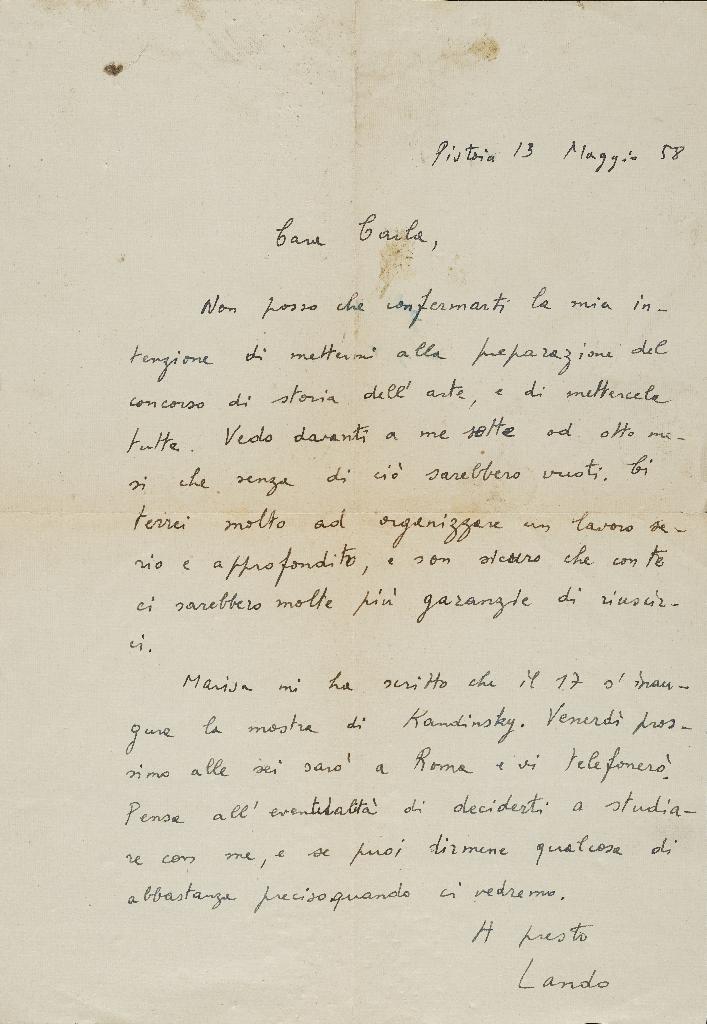 Pistoia 13 Maggio 58
Cara Carla,
Non posso che confermarti la mia in-
tenzione di mettermi alla preparazione del
concorso di storia dell'arte, e di mettercela
tutta. Vedo davanti a me sette od otto me-
si che senza di ciò sarebbero vuoti. Ci
terrei molto ad organizzare un lavoro se-
rio e approfondito, e son sicuro che con te
ci sarebbero molte più garanzie di riuscir-
ci.
Marisa mi ha scritto che il 17 s'inau-
gura la mostra di Kandinsky. Venerdì pros-
simo alle sei sarò a Roma e vi telefonerò.
Pensa all'eventualità di deciderti a studia-
re con me, e se puoi dirmene qualcosa di
abbastanza preciso quando ci vedremo.
A presto
Lando